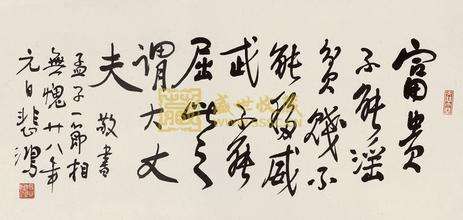 富貴
不能淫
貧賤不
能移威
武不能
屈此之
謂大丈
夫 敬書
孟子一節相
無愧 廿八年
元日悲鴻